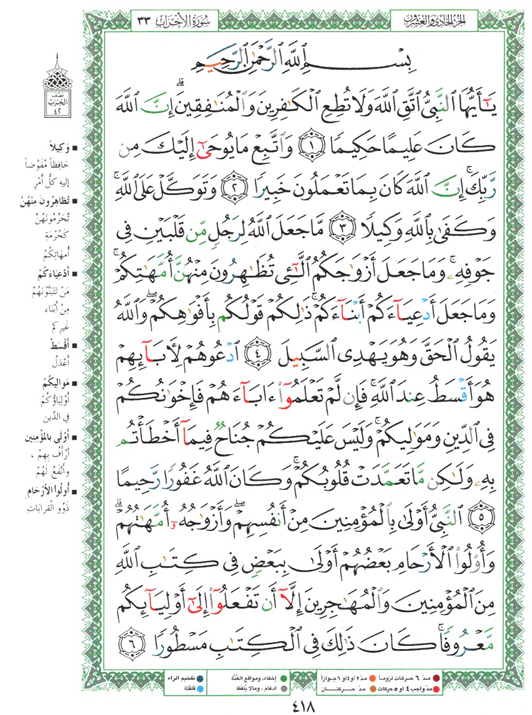 الجزء الحادي والعشرون
سورة الأحزاب ٣٣
بِسْمِ اللَّهِ الرَّحْمَٰنِ الرَّحِيمِ
يَا أَيُّهَا النَّبِيُّ اتَّقِ اللَّهَ وَلَا تُطِعِ الْكَافِرِينَ وَالْمُنَافِقِينَ ۗ إِنَّ اللَّهَ
كَانَ عَلِيمًا حَكِيمًا ١ وَاتَّبِعْ مَا يُوحَىٰ إِلَيْكَ مِن
رَّبِّكَ ۚ إِنَّ اللَّهَ كَانَ بِمَا تَعْمَلُونَ خَبِيرًا ٢ وَتَوَكَّلْ عَلَى اللَّهِ ۚ
وَكَفَىٰ بِاللَّهِ وَكِيلًا ٣ مَّا جَعَلَ اللَّهُ لِرَجُلٍ مِّن قَلْبَيْنِ فِي
جَوْفِهِ ۚ وَمَا جَعَلَ أَزْوَاجَكُمُ اللَّائِي تُظَاهِرُونَ مِنْهُنَّ أُمَّهَاتِكُمْ ۚ
وَمَا جَعَلَ أَدْعِيَاءَكُمْ أَبْنَاءَكُمْ ۚ ذَٰلِكُمْ قَوْلُكُم بِأَفْوَاهِكُمْ ۖ وَاللَّهُ
يَقُولُ الْحَقَّ وَهُوَ يَهْدِي السَّبِيلَ ٤ ادْعُوهُمْ لِآبَائِهِمْ
هُوَ أَقْسَطُ عِندَ اللَّهِ ۚ فَإِن لَّمْ تَعْلَمُوا آبَاءَهُمْ فَإِخْوَانُكُمْ
فِي الدِّينِ وَمَوَالِيكُمْ ۚ وَلَيْسَ عَلَيْكُمْ جُنَاحٌ فِيمَا أَخْطَأْتُم
بِهِ وَلَٰكِن مَّا تَعَمَّدَتْ قُلُوبُكُمْ ۚ وَكَانَ اللَّهُ غَفُورًا رَّحِيمًا
٥ النَّبِيُّ أَوْلَىٰ بِالْمُؤْمِنِينَ مِنْ أَنفُسِهِمْ ۖ وَأَزْوَاجُهُ أُمَّهَاتُهُمْ ۗ
وَأُولُو الْأَرْحَامِ بَعْضُهُمْ أَوْلَىٰ بِبَعْضٍ فِي كِتَابِ اللَّهِ
مِنَ الْمُؤْمِنِينَ وَالْمُهَاجِرِينَ إِلَّا أَن تَفْعَلُوا إِلَىٰ أَوْلِيَائِكُم
مَّعْرُوفًا ۚ كَانَ ذَٰلِكَ فِي الْكِتَابِ مَسْطُورًا ٦
نصف
الحزب
٤٢
وَكِيلًا
حافظًا مُفَوَّضًا
إليه كلُّ أمرٍ
تُظَاهِرُونَ مِنْهُنَّ
تُحَرِّمُونَهُنَّ
كَحُرْمَةِ
أُمَّهَاتِكُمْ
أَدْعِيَاءَكُمْ
مَنْ تَتَبَنَّوْنَهُمْ
مِنْ أَبْنَاءِ
غَيْرِكُمْ
أَقْسَطُ
أَعْدَلُ
مَوَالِيكُمْ
أَوْلِيَاؤُكُمْ
في الدِّين
أَوْلَى بِالْمُؤْمِنِينَ
أَرْأَفُ بِهِمْ ،
وَأَنْفَعُ لَهُمْ
أُولُوا الأَرْحَامِ
ذَوُو القَرَابَاتِ
مدّ ٦ حركات لزوماً
مدّ ٢ أو ٤ أو ٦ جوازاً
مدّ واجب ٤ أو ٥ حركات
مدّ حركتان
إخفاء، ومواقع الغُنَّة
ادغام ، وما لا يلفظ
تفخيم الراء
قلقلة
٤١٨